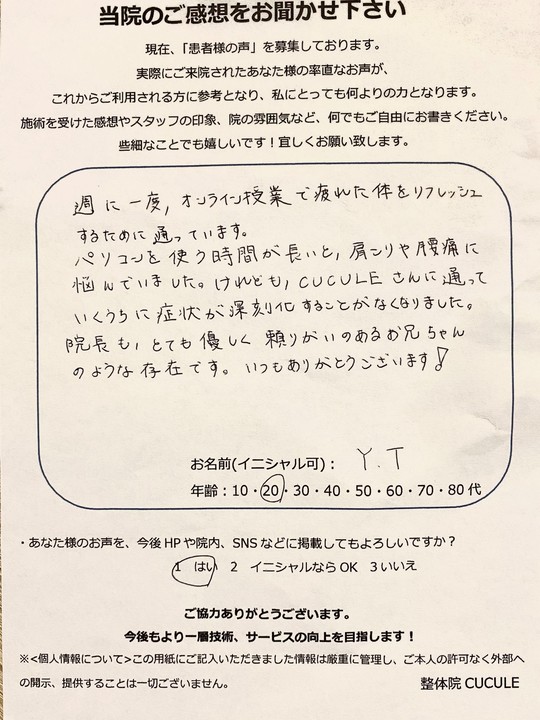 当院のご感想をお聞かせ下さい
現在、「患者様の声」を募集しております。
実際にご来院されたあなた様の率直なお声が、
これからご利用される方に参考となり、私にとっても何よりの力となります。
施術を受けた感想やスタッフの印象、院の雰囲気など、何でもご自由にお書きください。
些細なことでも嬉しいです！宜しくお願い致します。
週に一度, オンライン授業で疲れた体をリフレッシュ
するために通っています。
パソコンを使う時間が長いと, 肩こりや腰痛に
悩んでいました。けれども, CUCULEさんに通って
いくうちに症状が深刻化することがなくなりました。
院長も, とても優しく頼りがいのあるお兄ちゃん
のような存在です。いつもありがとうございます!
お名前(イニシャル可)： Y.T
年齢：10・20・30・40・50・60・70・80 代
・あなた様のお声を、今後 HP や院内、SNS などに掲載してもよろしいですか？
1 はい 2 イニシャルなら OK 3 いいえ
ご協力ありがとうございます。
今後もより一層技術、サービスの向上を目指します！
※<個人情報について>この用紙にご記入いただきました情報は厳重に管理し、ご本人の許可なく外部へ
の開示、提供することは一切ございません。
整体院 CUCULE